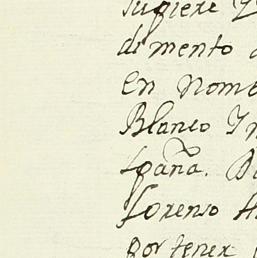 sugiere
dimento
en nom
Blanco Yn
spaña. D
Lorenso
por tener